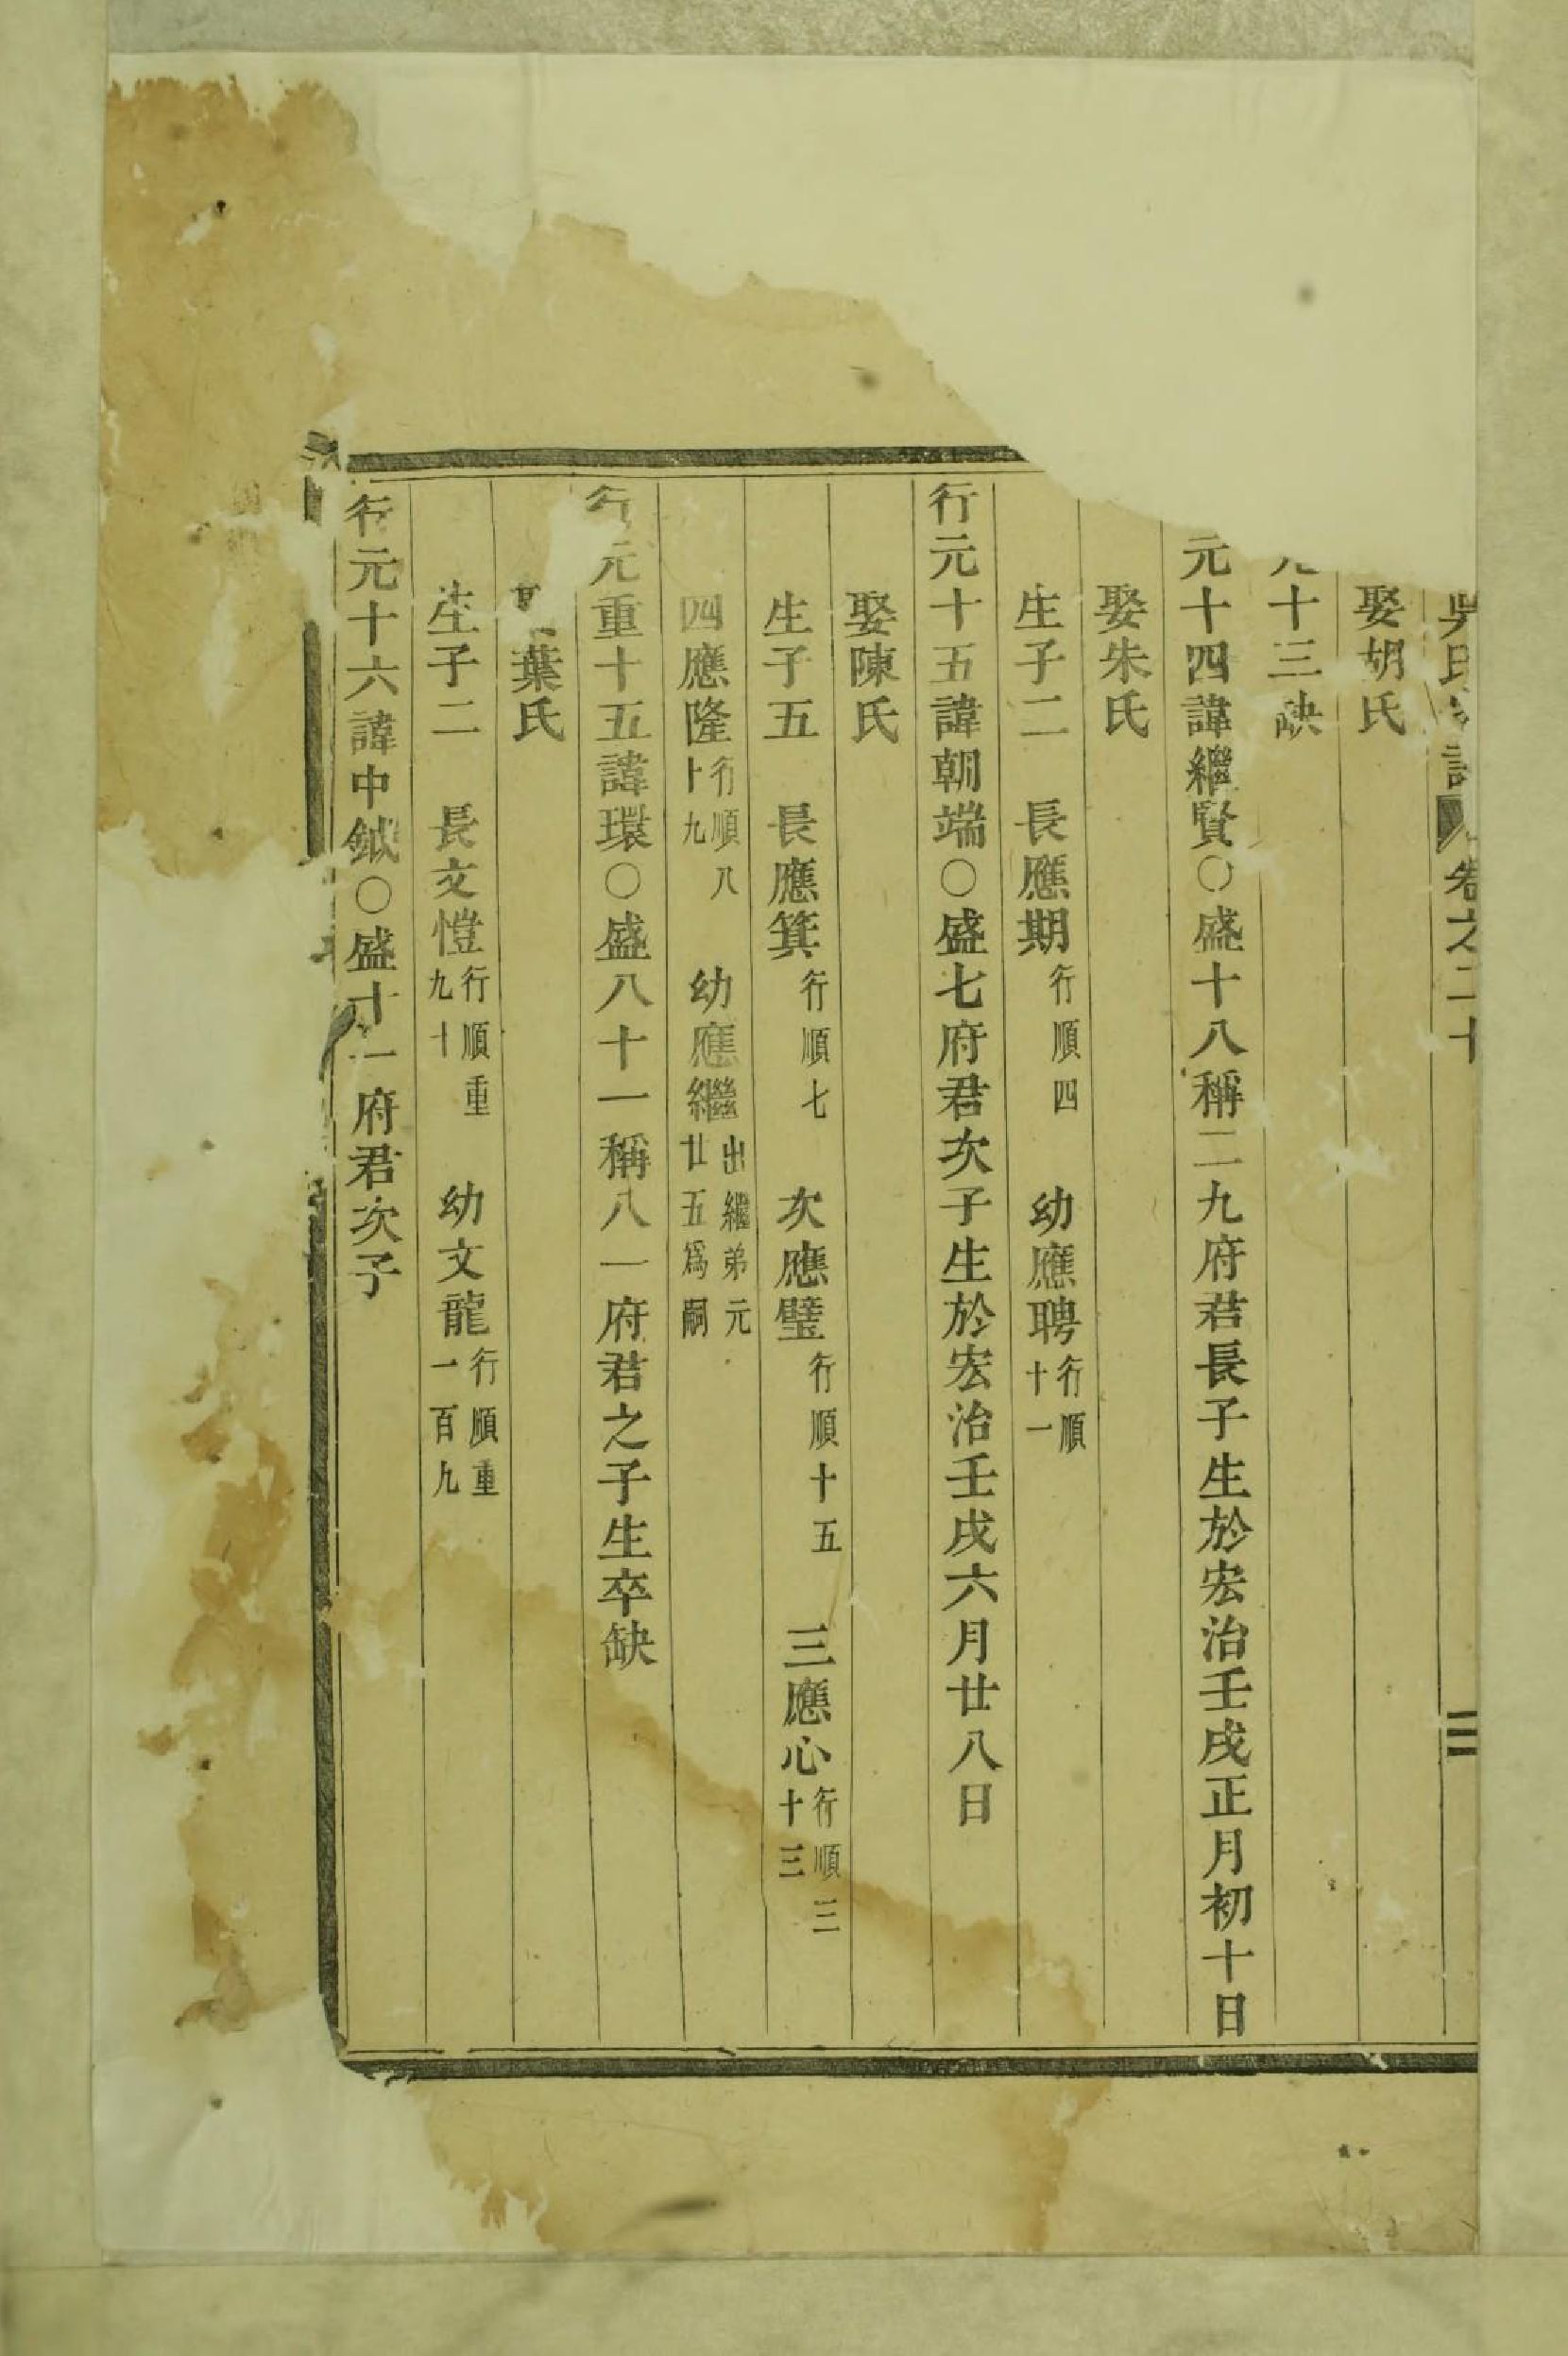 吳氏譜 卷之二十 二
娶胡氏
元十三缺
元十四諱繼賢○盛十八稱二九府君長子生於宏治壬戌正月初十日
娶朱氏
生子二 長應期行順四 幼應聘行順十一
行元十五諱朝端○盛七府君次子生於宏治壬戌六月廿八日
娶陳氏
生子五 長應箕行順七 次應璧行順十五 三應心行順三十三
四應隆行順八十九 幼應繼出繼弟元廿五爲嗣
行元重十五諱環○盛八十一稱八一府君之子生卒缺
葉氏
生子二 長文愷行順重九十 幼文龍行順重一百九
行元十六諱中鉞○盛十一府君次子